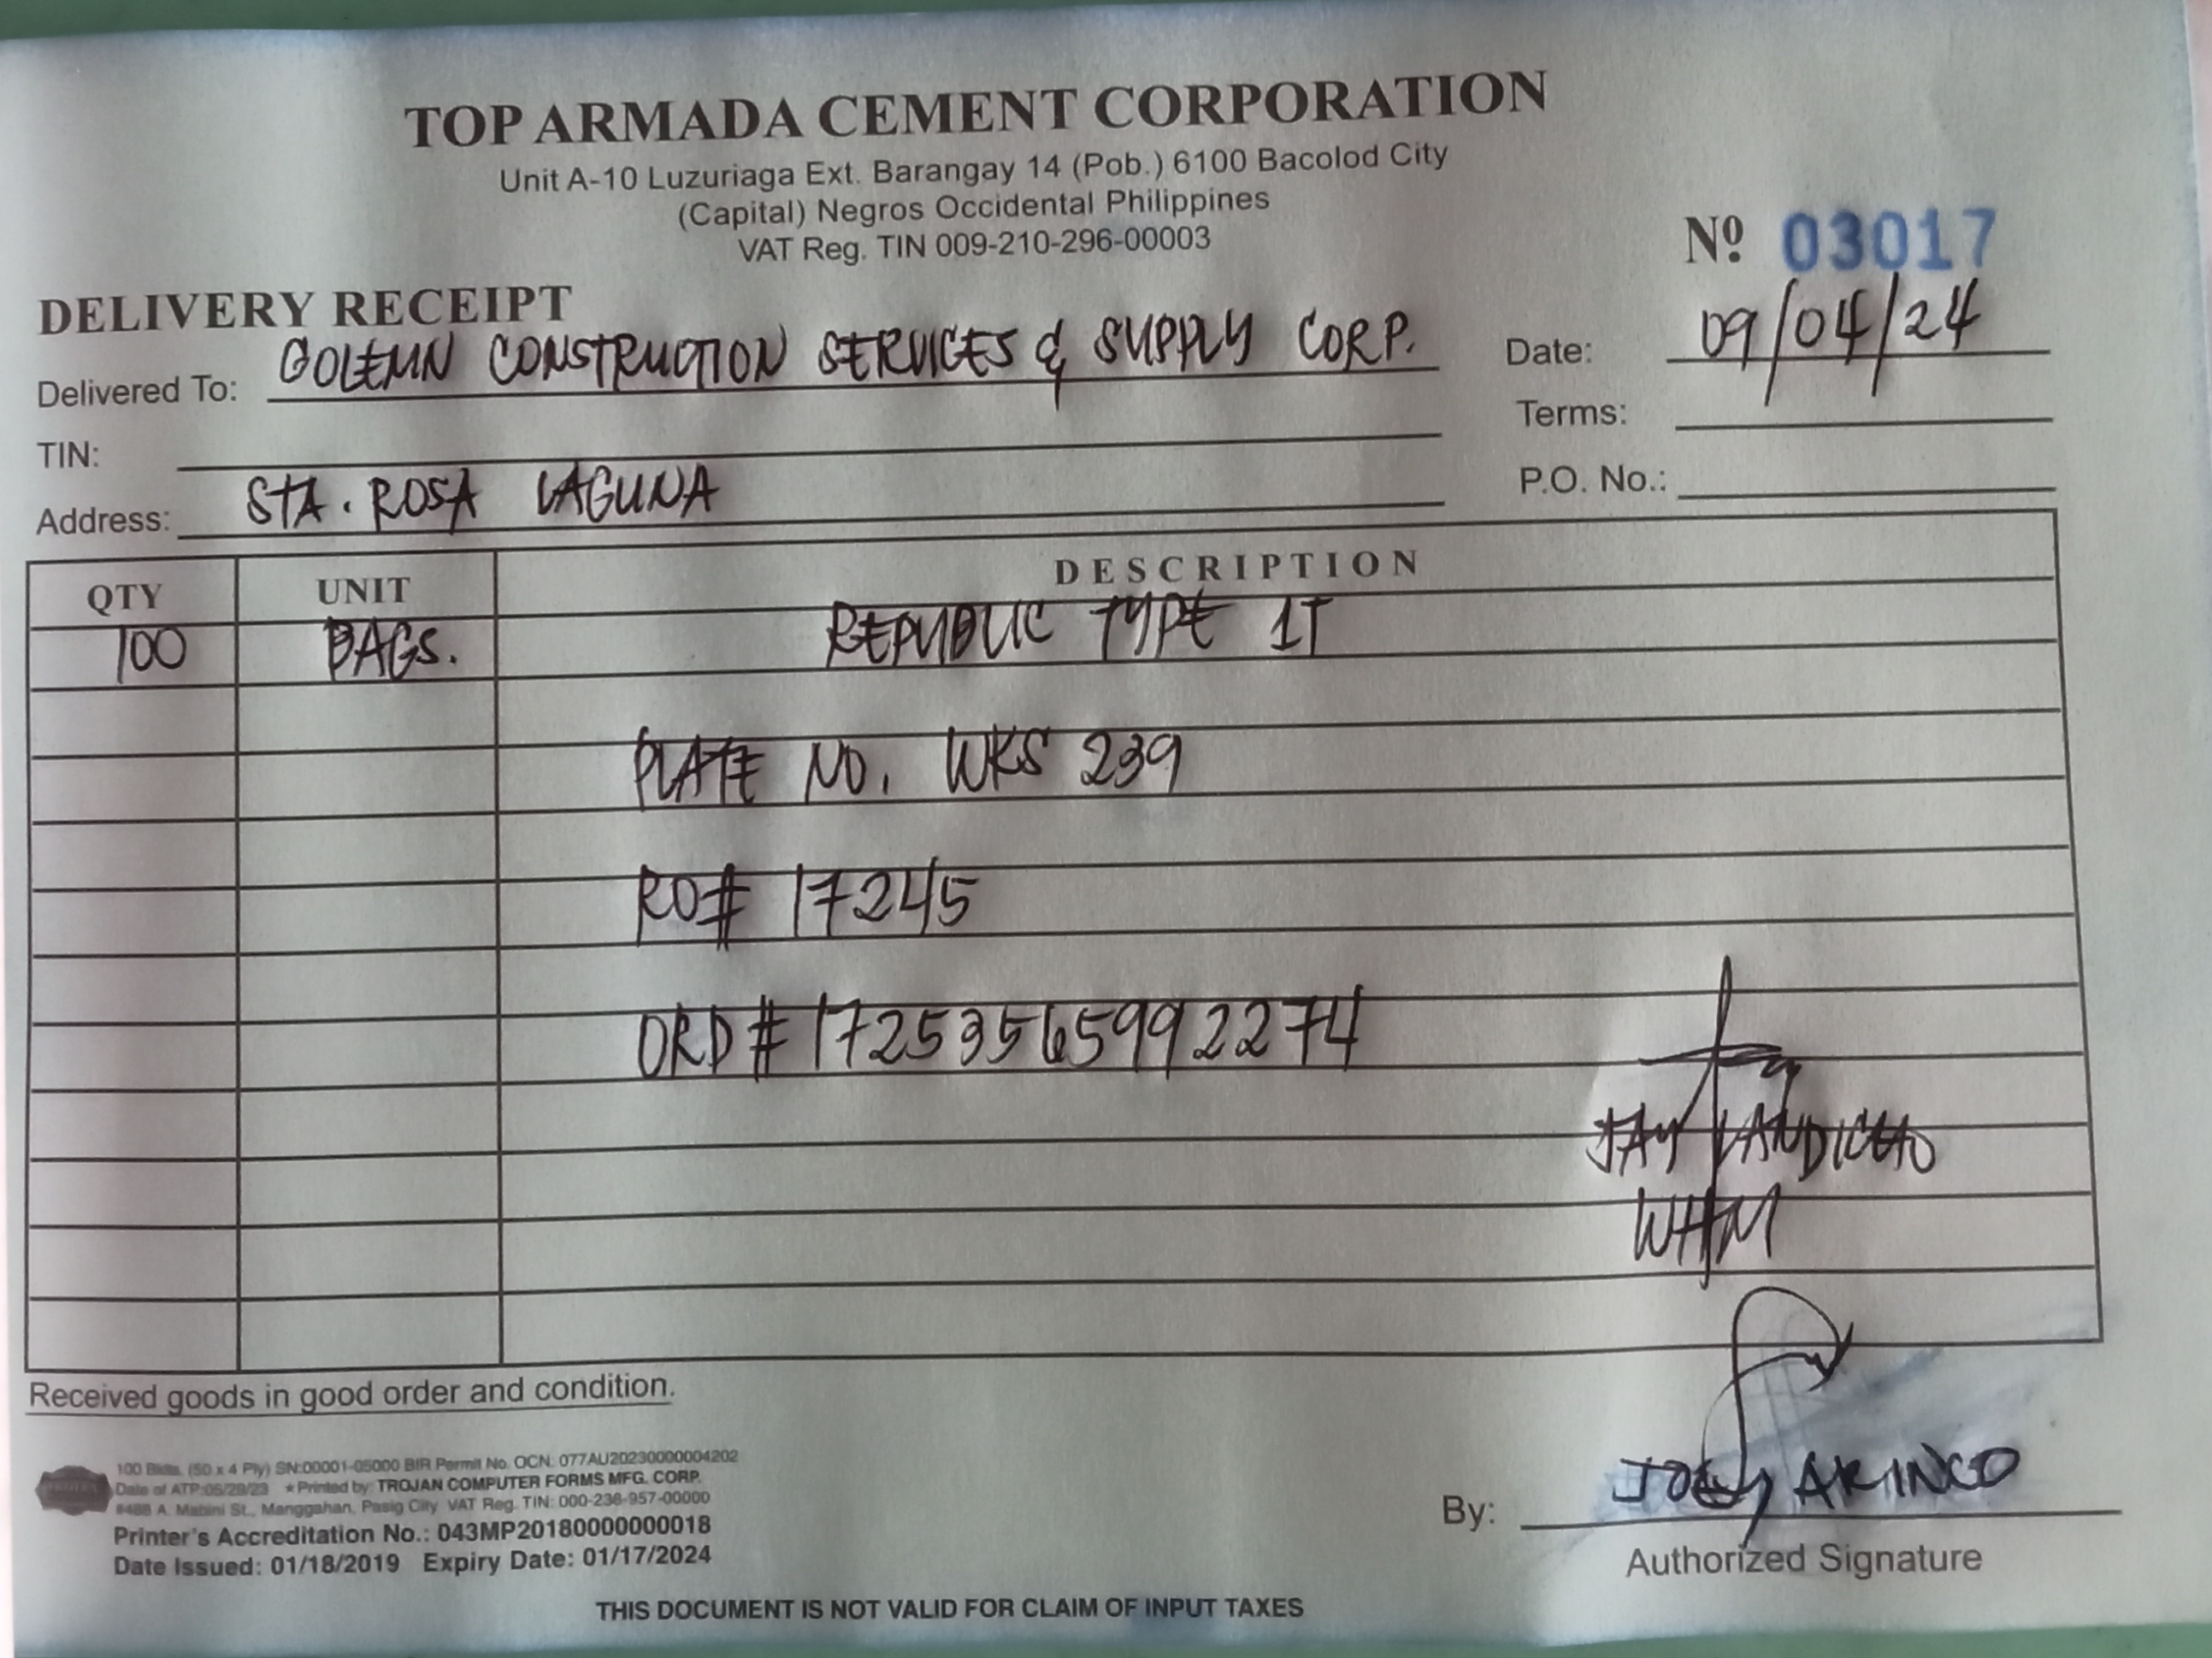 TOP ARMADA CEMENT CORPORATION
Unit A-10 Luzuriaga Ext. Barangay 14 (Pob.) 6100 Bacolod City
(Capital) Negros Occidental Philippines
VAT Reg. TIN 009-210-296-00003
Nº 03017
DELIVERY RECEIPT
Delivered To: GOLEMN CONSTRUCTION SERVICES & SUPPLY CORP.
Date: 09/04/24
TIN:
Terms:
Address: STA. ROSA LAGUNA
P.O. No.:
QTY UNIT DESCRIPTION
100 BAGS. REPUBLIC TYPE 1T
PLATE NO. WKS 239
RO# 17245
ORD# 17253565992274
JAY LANDICHO
WHM
Received goods in good order and condition.
100 Bklts. (50 x 4 Ply) SN:00001-05000 BIR Permit No. OCN: 077AU20230000004202
Date of ATP:05/29/23 ★Printed by: TROJAN COMPUTER FORMS MFG. CORP.
#48B A. Mabini St., Manggahan, Pasig City VAT Reg. TIN: 000-238-957-00000
Printer's Accreditation No.: 043MP20180000000018
Date Issued: 01/18/2019 Expiry Date: 01/17/2024
By: JOEY ARINCO
Authorized Signature
THIS DOCUMENT IS NOT VALID FOR CLAIM OF INPUT TAXES